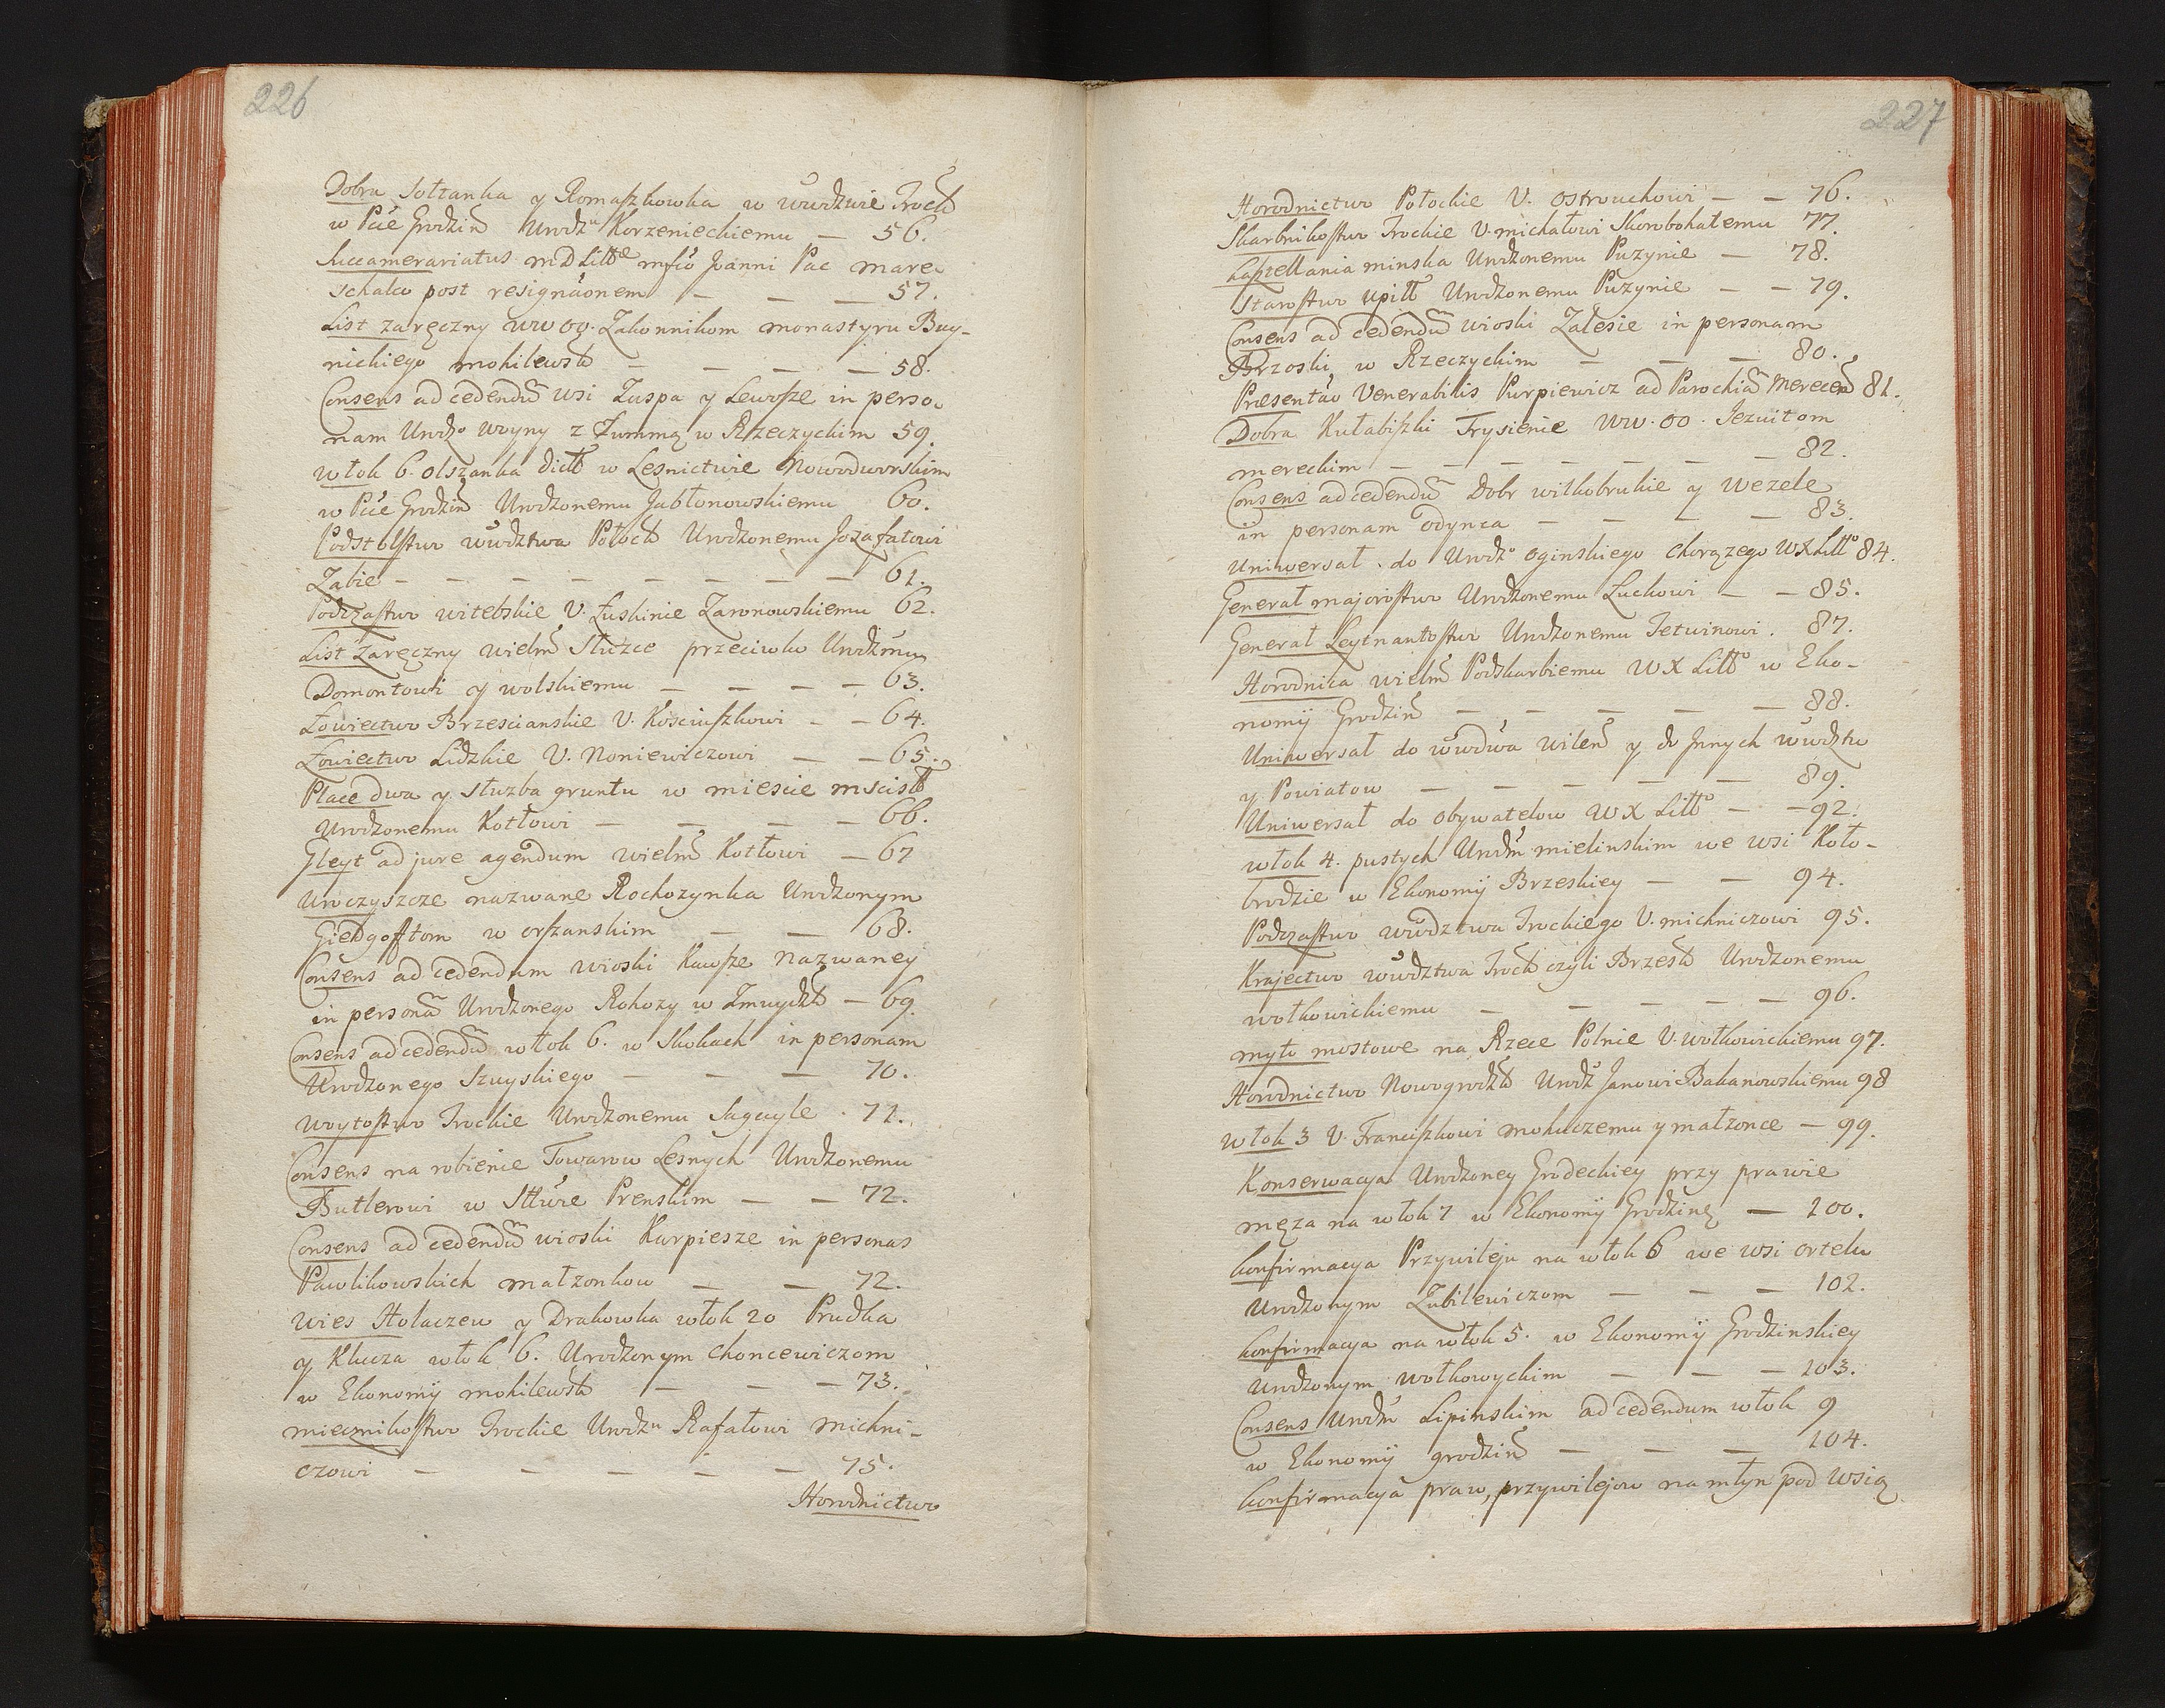 226
Dobra Sołtanka y Romaszkowka w wwdztwie Trock
w Pcie Grodzin Urodzu Korzenieckiemu — 56.
Succamerariatus MDLitte Mfco Joanni Pac Mare-
schalco post resignaonem — — — 57.
List zaręczny WW OO. Zakonnikom Monastyru Buy-
nickiego Mohilewsk — — — — 58.
Consens ad cedendu wsi Zuspa y Lewosze in perso-
nam Urodzo Woyny z Zummą w Rzeczyckim 59.
Włok 6. Olszanka dict w Leśnictwie Nowodworskim
w Pcie Grodzin Urodzonemu Jabłonowskiemu 60.
Podstolstwo wwdztwa Połock Urodzonemu Jozafatowi
Zabie — — — — — — — — 61.
Podczastwo Witebskie U. Łuskinie Zaronowskiemu 62.
List Zaręczny Wielm Służce przeciwko Urodzmu
Domontowi y Wolskiemu — — — — 63.
Łowiectwo Brzescianskie U. Kosciuszkowi — — 64.
Łowiectwo Lidzkie U. Noniewiczowi — — 65.
Place dwa y służba gruntu w miescie Mscisł
Urodzonemu Kotłowi — — — — 66.
Gleyt ad jure agendum Wielm Kotłowi — 67
Uroczyszcze nazwane Rochozynka Urodzonym
Giedgoftom w Orszanskim — — 68.
Consens ad cedendum wioski Kawsze nazwaney
in persona Urodzonego Rohozy w Zmuydzk — 69.
Consens ad cedendu włok 6. w Skokach in personam
Urodzonego Szuyskiego — — — 70.
Woytostwo Trockie Urodzonemu Sagayle . 71.
Consens na robienie Towarow Leśnych Urodzonemu
Butlerowi w Sttwie Prenskim — — 72.
Consens ad cedendu wioski Karpiesze in personas
Pawlikowskich małzonkow — — 72.
Wies Hołaczew y Drakowka włok 20 Prudka
y Klucza włok 6. Urodzonym Choncewiczom
w Ekonomij Mohilewsk — — — 73.
Miecznikostwo Trockie Urodzu Rafałowi Michni-
czowi — — — — — 75.
Horodnictwo
227
Horodnictwo Połockie U. Ostrouchowi — — 76.
Skarbnikostwo Trockie U. Michałowi Skorobohatemu 77.
Kasztellania Minska Urodzonemu Puzynie — 78.
Starostwo Upitt Urodzonemu Puzynie — — 79.
Consens ad cedendu wioski Zalesie in personam
Brzoski, w Rzeczyckim — — — 80.
Praesentao Venerabilis Purpiewicz ad Parochia Merecen 81.
Dobra Kułabiszki Trysienie WW. OO. Jezuitom
Mereckim — — — — — — — 82.
Consens ad cedendu Dobr Wilkobrukie y Wezele
in personam Odynca — — — — 83.
Uniwersał do Urodzo Oginskiego Chorązego WXLitto 84.
Generał Majorostwo Urodzonemu Luckowi — — 85.
Generał Leytnantostwo Urodzonemu Jetwinowi . 87.
Horodnica Wielm Podskarbiemu WX Litto w Eko-
nomij Grodzin — — — — — 88.
Uniwersał do wwdwa Wilen y do Innych wwdztw
y Powiatow — — — — — 89.
Uniwersał do obywatelow WX Litto — — 92.
Włok 4. pustych Urodm Mielinskim we wsi Koło-
brodzie w Ekonomij Brzeskiey — — 94.
Podczastwo wwdztwa Trockiego U. Michniczowi 95.
Krajectwo wwdztwa Trock czyli Brzesk Urodzonemu
Wołkowickiemu — — — — — 96.
Myto mostowe na Rzece Polnie U. Wołkowickiemu 97.
Horodnictwo Nowogrodzk Urodz Janowi Bakanowskiemu 98
Włok 3 U. Franciszkowi Mokuczemu y małzonce — 99.
Konserwacya Urodzoney Grodeckiey przy prawie
męza na włok 7 w Ekonomij Grodzinę — 100.
Konfirmacya Przywileju na włok 6 we wsi Ortelu
Urodzonym Zubilewiczom — — — 102.
Konfirmacya na włok 5. w Ekonomij Grodzinskiey
Urodzonym Wołkowyckim — — — 103.
Consens Urodm Lipinskim ad cedendum włok 9
w Ekonomij grodzin — — — 104.
Konfirmacya praw, przywilejow na młyn pod wsią